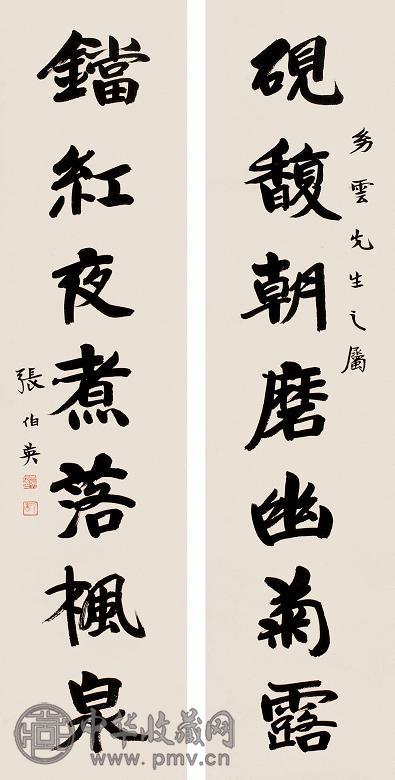 雲先生之屬
硯馥朝磨幽菊露
鐺紅夜煮落楓泉
張伯英
中华收藏网
www.pmv.cn